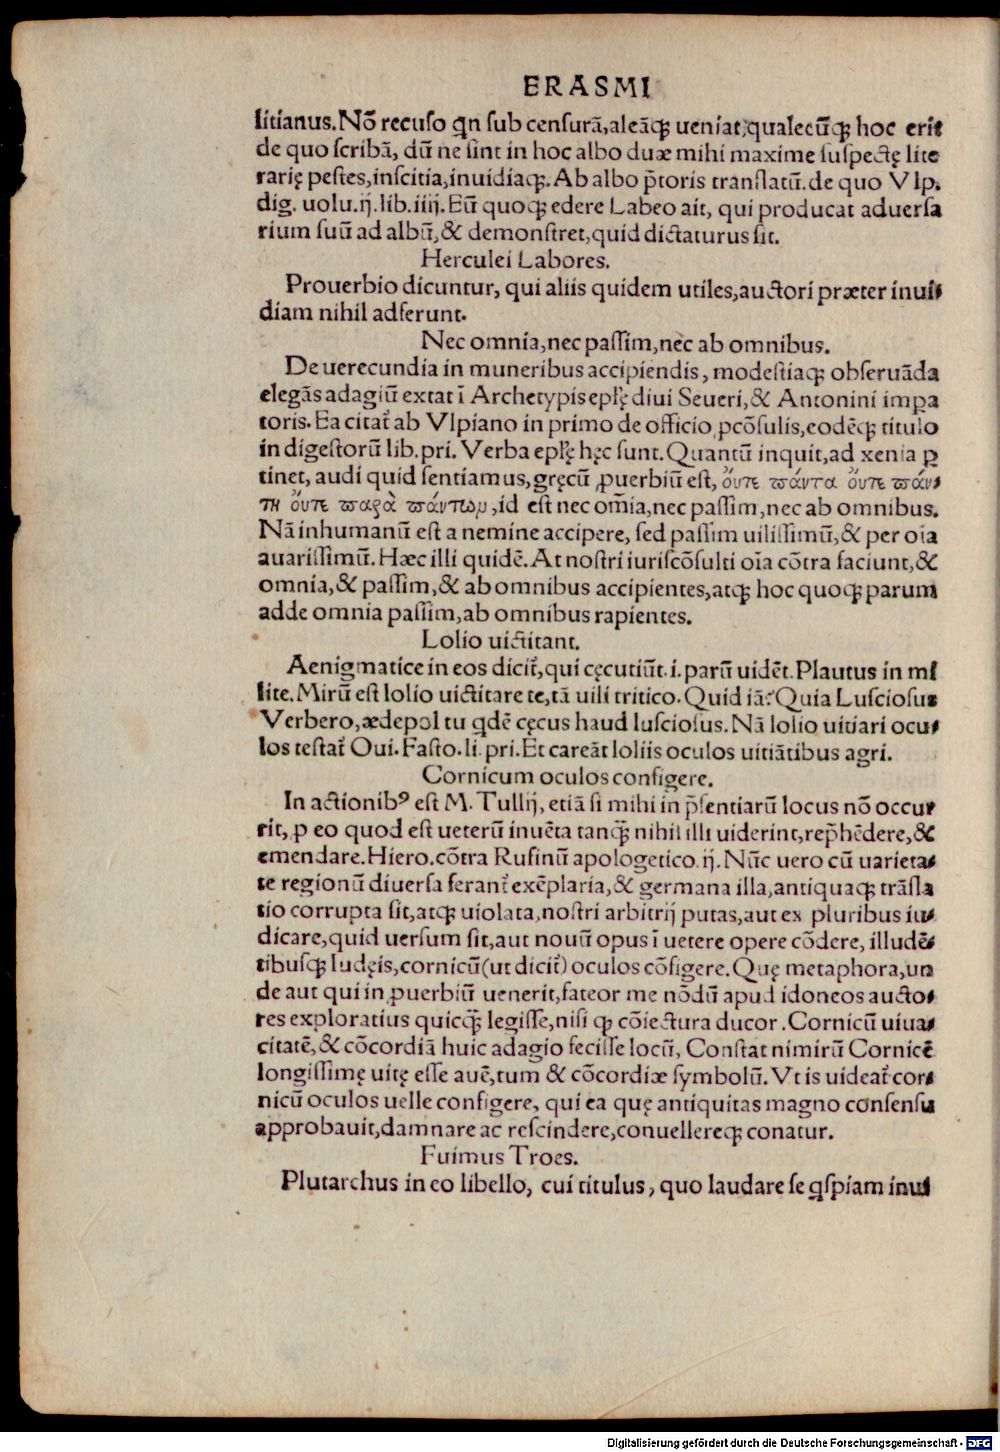 ERASMI
litianus. Nõ recuso qn sub censurã, aleãqꝫ ueniat, qualecũqꝫ hoc erit
de quo scribã, dũ ne sint in hoc albo duæ mihi maxime suspectę lite
rarię pestes, inscitia, inuidiaqꝫ. Ab albo p̃toris translatũ. de quo Vlp.
dig. uolu. ij. lib. iiij. Eũ quoqꝫ edere Labeo ait, qui producat aduersa
rium suũ ad albũ, & demonstret, quid dictaturus sit.
Herculei Labores.
Prouerbio dicuntur, qui aliis quidem utiles, auctori præter inui-
diam nihil adferunt.
Nec omnia, nec passim, nec ab omnibus.
De uerecundia in muneribus accipiendis, modestiaqꝫ obseruãda
elegãs adagiũ extat ĩ Archetypis epl̃ę diui Seueri, & Antonini impa
toris. Ea citat᷑ ab Vlpiano in primo de officio ꝓcõsulis, eodẽqꝫ titulo
in digestorũ lib. pri. Verba epl̃ę hęc sunt. Quantũ inquit, ad xenia ꝑ
tinet, audi quid sentiamus, gręcũ ꝓuerbiũ est, οὔτε πάντα οὔτε πάν-
τη οὔτε παρὰ πάντων, id est nec om̃ia, nec passim, nec ab omnibus.
Nã inhumanũ est a nemine accipere, sed passim uilissimũ, & per oĩa
auarissimũ. Hæc illi quidẽ. At nostri iuriscõsulti oĩa cõtra faciunt, &
omnia, & passim, & ab omnibus accipientes, atqꝫ hoc quoqꝫ parum
adde omnia passim, ab omnibus rapientes.
Lolio uictitant.
Aenigmatice in eos dicit᷑, qui cęcutiũt. i. parũ uidẽt. Plautus in mi
lite. Mirũ est lolio uictitare te, tã uili tritico. Quid iã? Quia Lusciosus
Verbero, ædepol tu qdẽ cęcus haud lusciosus. Nã lolio uitiari ocu-
los testat᷑ Oui. Fasto. li. pri. Et careãt loliis oculos uitiãtibus agri.
Cornicum oculos configere.
In actionibꝰ est M. Tullij, etiã si mihi in p̃sentiarũ locus nõ occur
rit, ꝓ eo quod est ueterũ inuẽta tanqꝫ̃ nihil illi uiderint, rep̃hẽdere, &
emendare. Hiero. cõtra Rufinũ apologetico. ij. Nũc uero cũ uarieta-
te regionũ diuersa ferant᷑ exẽplaria, & germana illa, antiquaqꝫ trãsla
tio corrupta sit, atqꝫ uiolata, nostri arbitrij putas, aut ex pluribus iu-
dicare, quid uersum sit, aut nouũ opus ĩ uetere opere cõdere, illudẽ-
tibusqꝫ Iudęis, cornicũ (ut dicit᷑) oculos cõfigere. Quę metaphora, un
de aut qui in ꝓuerbiũ uenerit, fateor me nõdũ apud idoneos aucto-
res exploratius quicqꝫ̃ legisse, nisi qꝫ cõiectura ducor. Cornicũ uiua-
citatẽ, & cõcordiã huic adagio fecisse locũ, Constat nimirũ Cornicẽ
longissimę uitę esse auẽ, tum & cõcordiæ symbolũ. Vt is uideat᷑ cor-
nicũ oculos uelle configere, qui ea quę antiquitas magno consensu
approbauit, damnare ac rescindere, conuellereqꝫ conatur.
Fuimus Troes.
Plutarchus in eo libello, cui titulus, quo laudare se qspiam inui
Digitalisierung gefördert durch die Deutsche Forschungsgemeinschaft - DFG